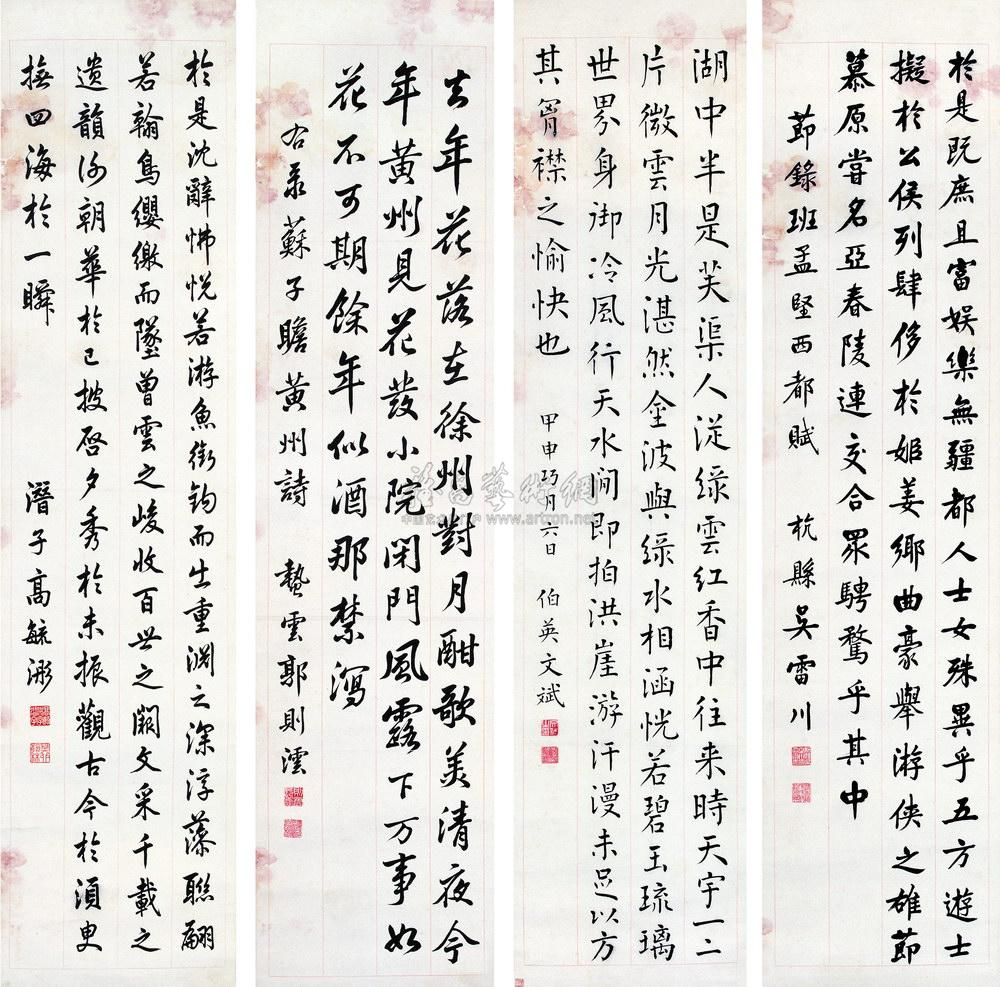 於是既庶且富娛樂無疆都人士女殊異乎五方遊士
擬於公侯列肆侈於姬姜鄉曲豪舉游俠之雄節
慕原嘗名亞春陵連交合眾騁騖乎其中
節錄班孟堅西都賦 杭縣吳雷川
湖中半是芙渠人從綠雲紅香中往來時天宇一二
片微雲月光湛然金波與綠水相涵恍若碧玉琉璃
世界身御冷風行天水間即拍洪崖游汗漫未足以方
其胷襟之愉快也 甲申巧月六日 伯英文斌
去年花落在徐州對月酣歌美清夜今
年黃州見花發小院閉門風露下万事如
花不可期餘年似酒那禁瀉
右录蘇子瞻黃州詩 蟄雲郭則澐
於是沈辭怫悅若游魚銜鉤而出重淵之深浮藻聯翩
若翰鳥纓繳而墜曾雲之峻收百世之闕文采千載之
遺韻謝朝華於已披啓夕秀於未振觀古今於須臾
撫四海於一瞬 潛子高毓浵
www.artron.net